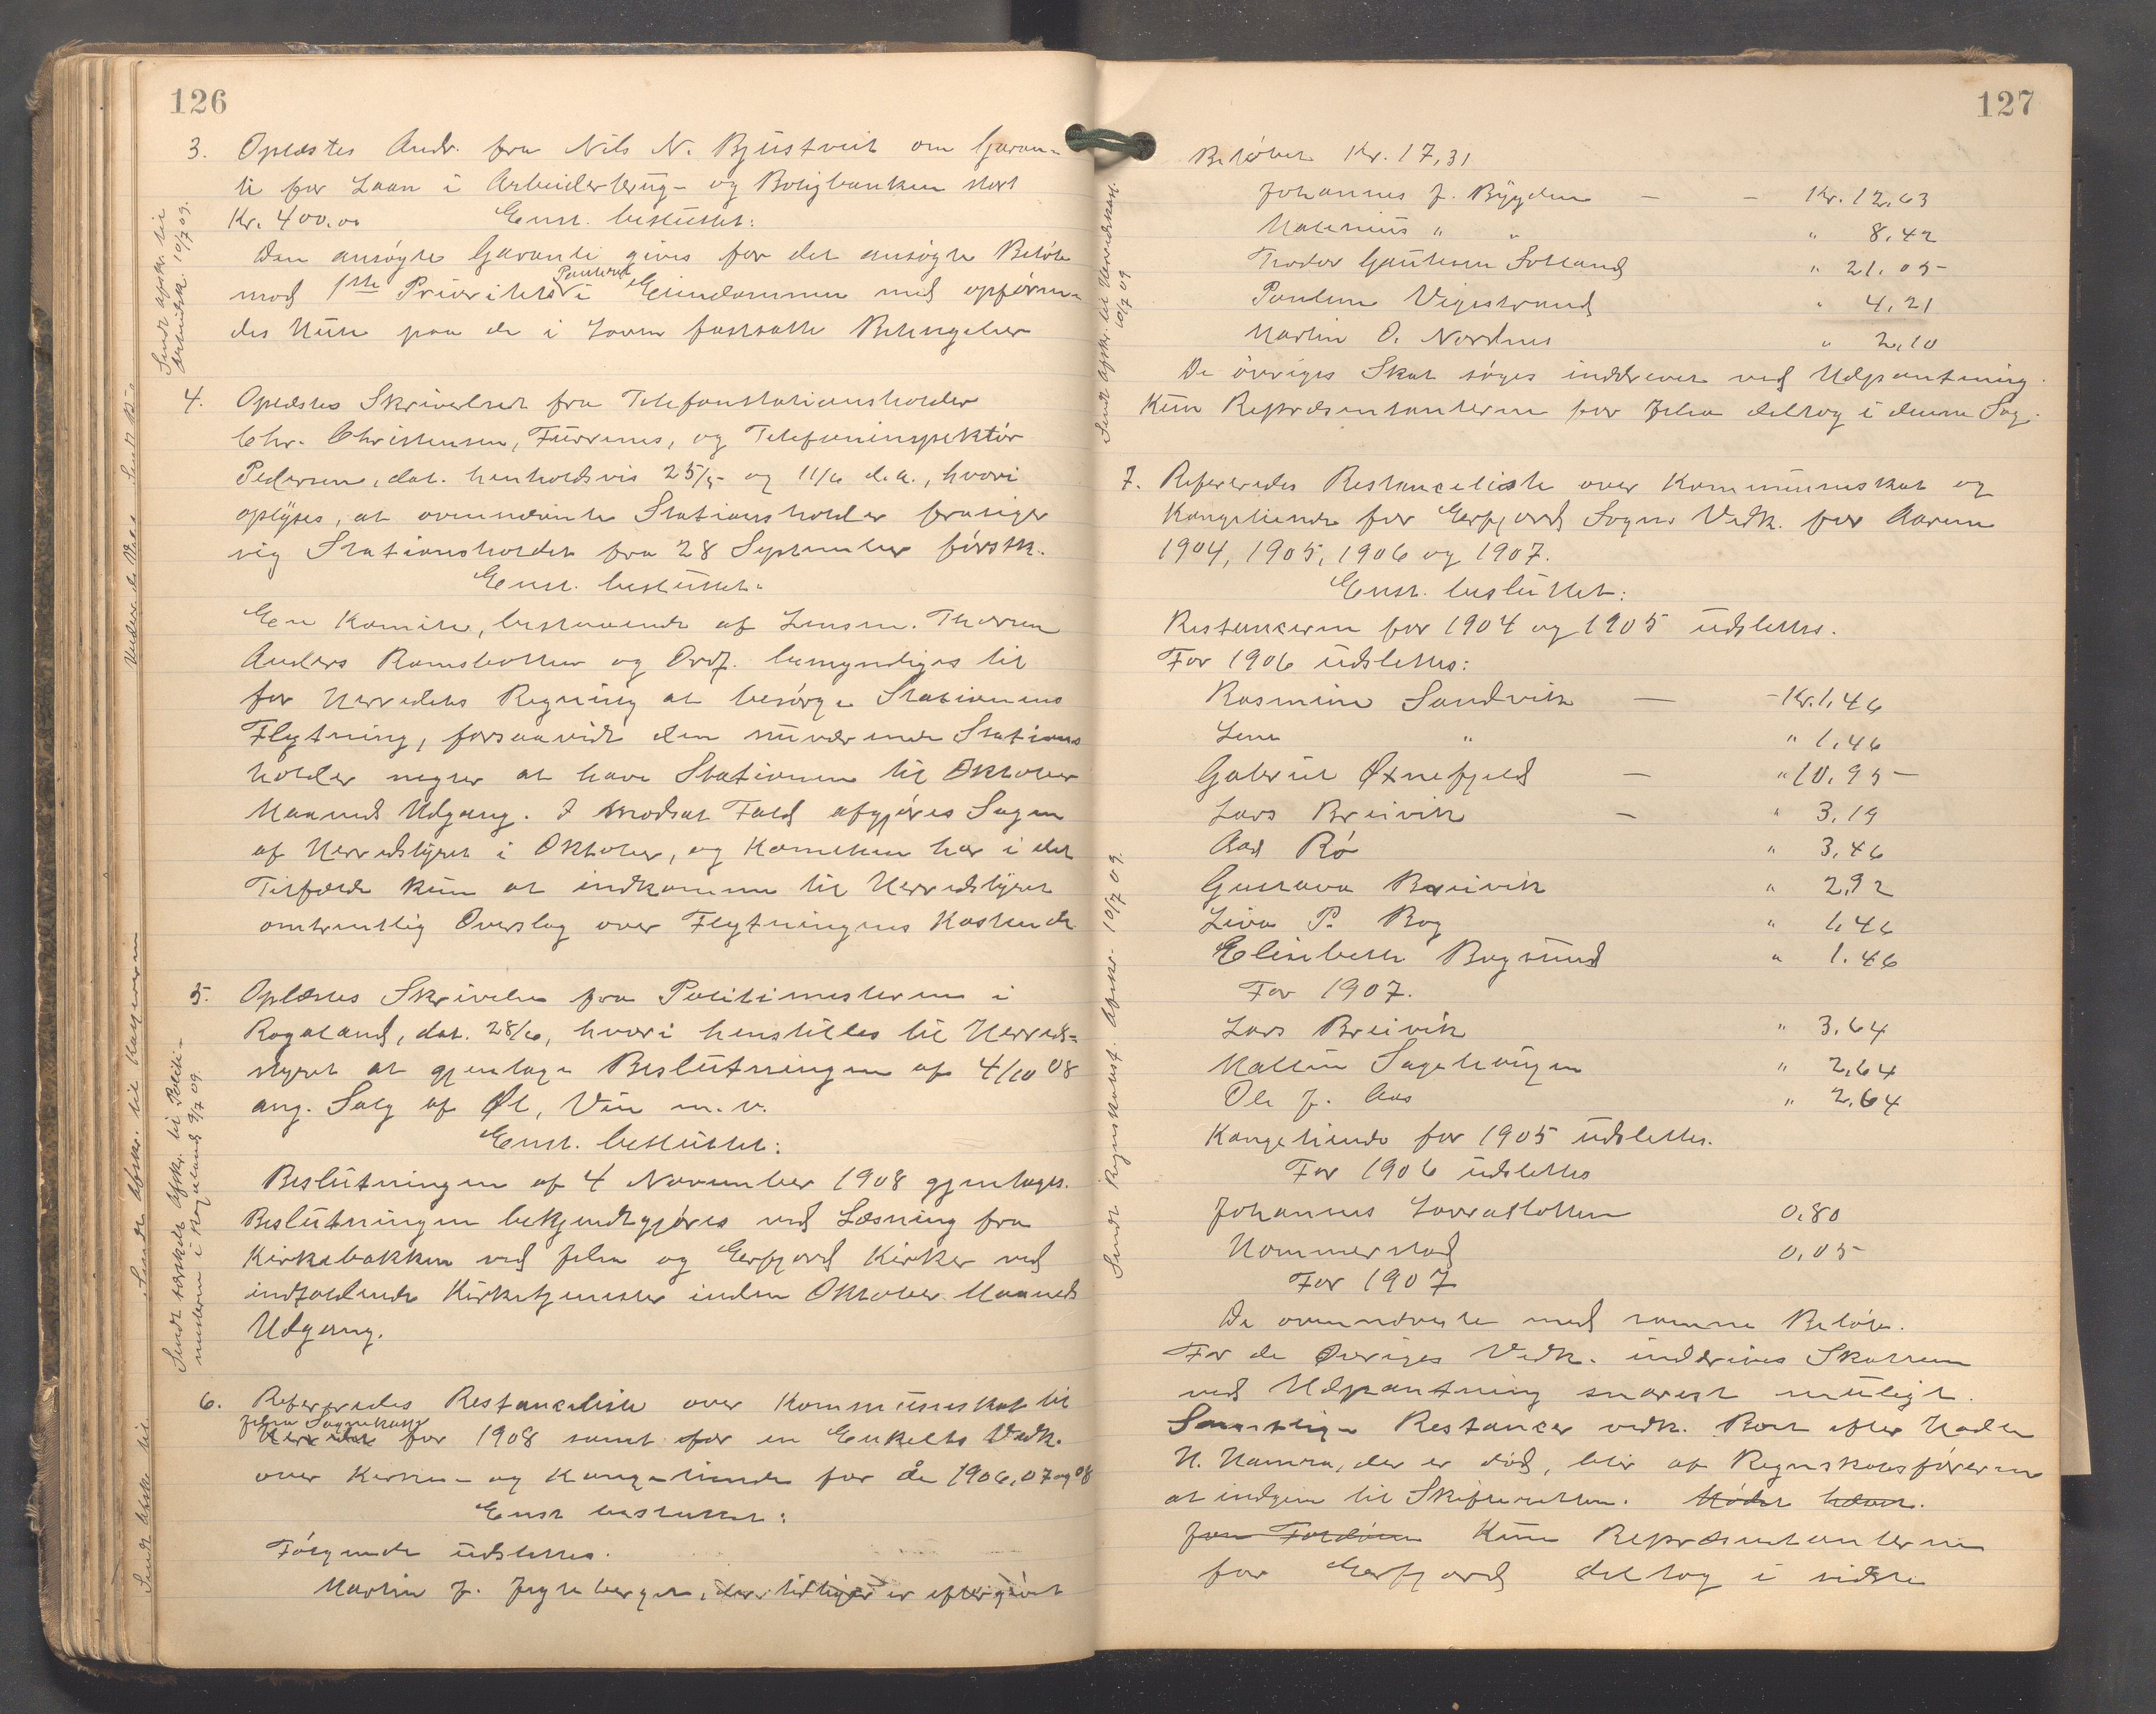 126
3. Oplæstes Andr. fra Nils N. Bjustveit om Garan-
ti for Laan i Arbeiderbrug- og Boligbanken stort
Kr. 400.00 Enst. besluttet:
Den ansøgte Garanti gives for det ansøgte Beløb
mod 1ste Prioritets Panteret i Eiendommen med opføren-
des Huse paa de i Loven fastsatte Betingelser
Sendt afskr. til
Arbeidsk. 10/7 09.
4. Oplæstes Skrivelser fra Telefonstationsholder
Chr. Christensen, Furrenes, og Telefoninspektør
Pedersen, dat. henholdsvis 25/5 og 11/6 d.a., hvori
oplyses, at ovennævnte Stationsholder frasiger
sig Stationsholdet fra 28 September førstk.
Enst. besluttet:
En Komite, bestaaende af Lensm. Thorsen
Anders Ramsbotten og Ordf. bemyndiges til
for Herredets Regning at besørge Stationens
Flytning, forsaavidt den nuværende Stations
holder negter at have Stationen til Oktober
Maaneds Udgang. I modsat Fald afgjøres Sagen
af Herredstyret i Oktober, og Komiteen har i det
Tilfælde kun at indkomme til Herredstyret
omtrentlig Overslag over Flytningens Kostende
5. Oplæstes Skrivelse fra Politimesteren i
Rogaland, dat. 28/6, hvori henstilles til Herreds-
styret at gjentage Beslutningen af 4/10 08
ang. Salg af Øl, Vin m.v.
Enst. besluttet:
Beslutningen af 4 November 1908 gjentages.
Beslutningen bekjendtgjøres ved Læsning fra
Kirkebakken ved Jelsa og Erfjord Kirker ved
indfaldende Kirketjenester inden Oktober Maaneds
Udgang.
Sendt særskilt afskr. til Politi-
mesteren i Rogaland 9/7 09.
6. Refereredes Restanceliste over Kommuneskat til
Jelsa Sognekasse
Herredet for 1908 samt for en Enkelts Vedk.
over Kirke- og Kongetiende for år 1906, 07 og 08
Enst besluttet:
Følgende udslettes.
Martin J. Jegteberget, der tidligere er eftergivet
127
Beløbet Kr. 17,31
Johannes J. Bygden — - Kr. 12,63
Matemius " " " 8,42
Trodor Gautesen Solland " 21,05
Pauline Vigestrand " 4,21
Martin O. Nordnes " 2,10
De øvriges Skat søges inddrevet ved Udpantning.
Kun Repræsentanterne for Jelsa deltog i denne Sag.
Sendt Afskr. til Herredskass.
10/7 09
7. Refereredes Restanceliste over Kommuneskat og
Kongetiende for Erfjord Sogns Vedk. for Aarene
1904, 1905, 1906 og 1907.
Enst. besluttet:
Restancerne for 1904 og 1905 udslettes.
For 1906 udslettes:
Rasmine Sandvik — - Kr. 1,46
Lene " " 1,46
Gabriel Øxnefjeld — " 10,95
Lars Breivik — " 3,19
Aad Rø " 3,46
Gustava Breivik " 2,92
Liva P. Bog " 1,46
Elisabeth Bogsund " 1.46
For 1907.
Lars Breivik " 3,64
Malline Sagehaugen " 2,64
Ole J. Aas " 2,64
Kongetiende for 1905 udslettes.
For 1906 udslettes
Johannes Lovraslotten 0,80
Hommerstad 0,05
For 1907
De ovennævnte med samme Beløb.
For de Øvriges Vedk. inddrives Skatten
ved Udpantning snarest muligt.
Samtlige Restancer vedk. Boet efter
H. Hamra, der er død, blir af Regnskabsføreren
at indgive til Skifteretten. Mødet hævet.
Kun Repræsentanterne
for Erfjord deltog i sidste
Sendt Regnskabsf. Afskr. 10/7 09.